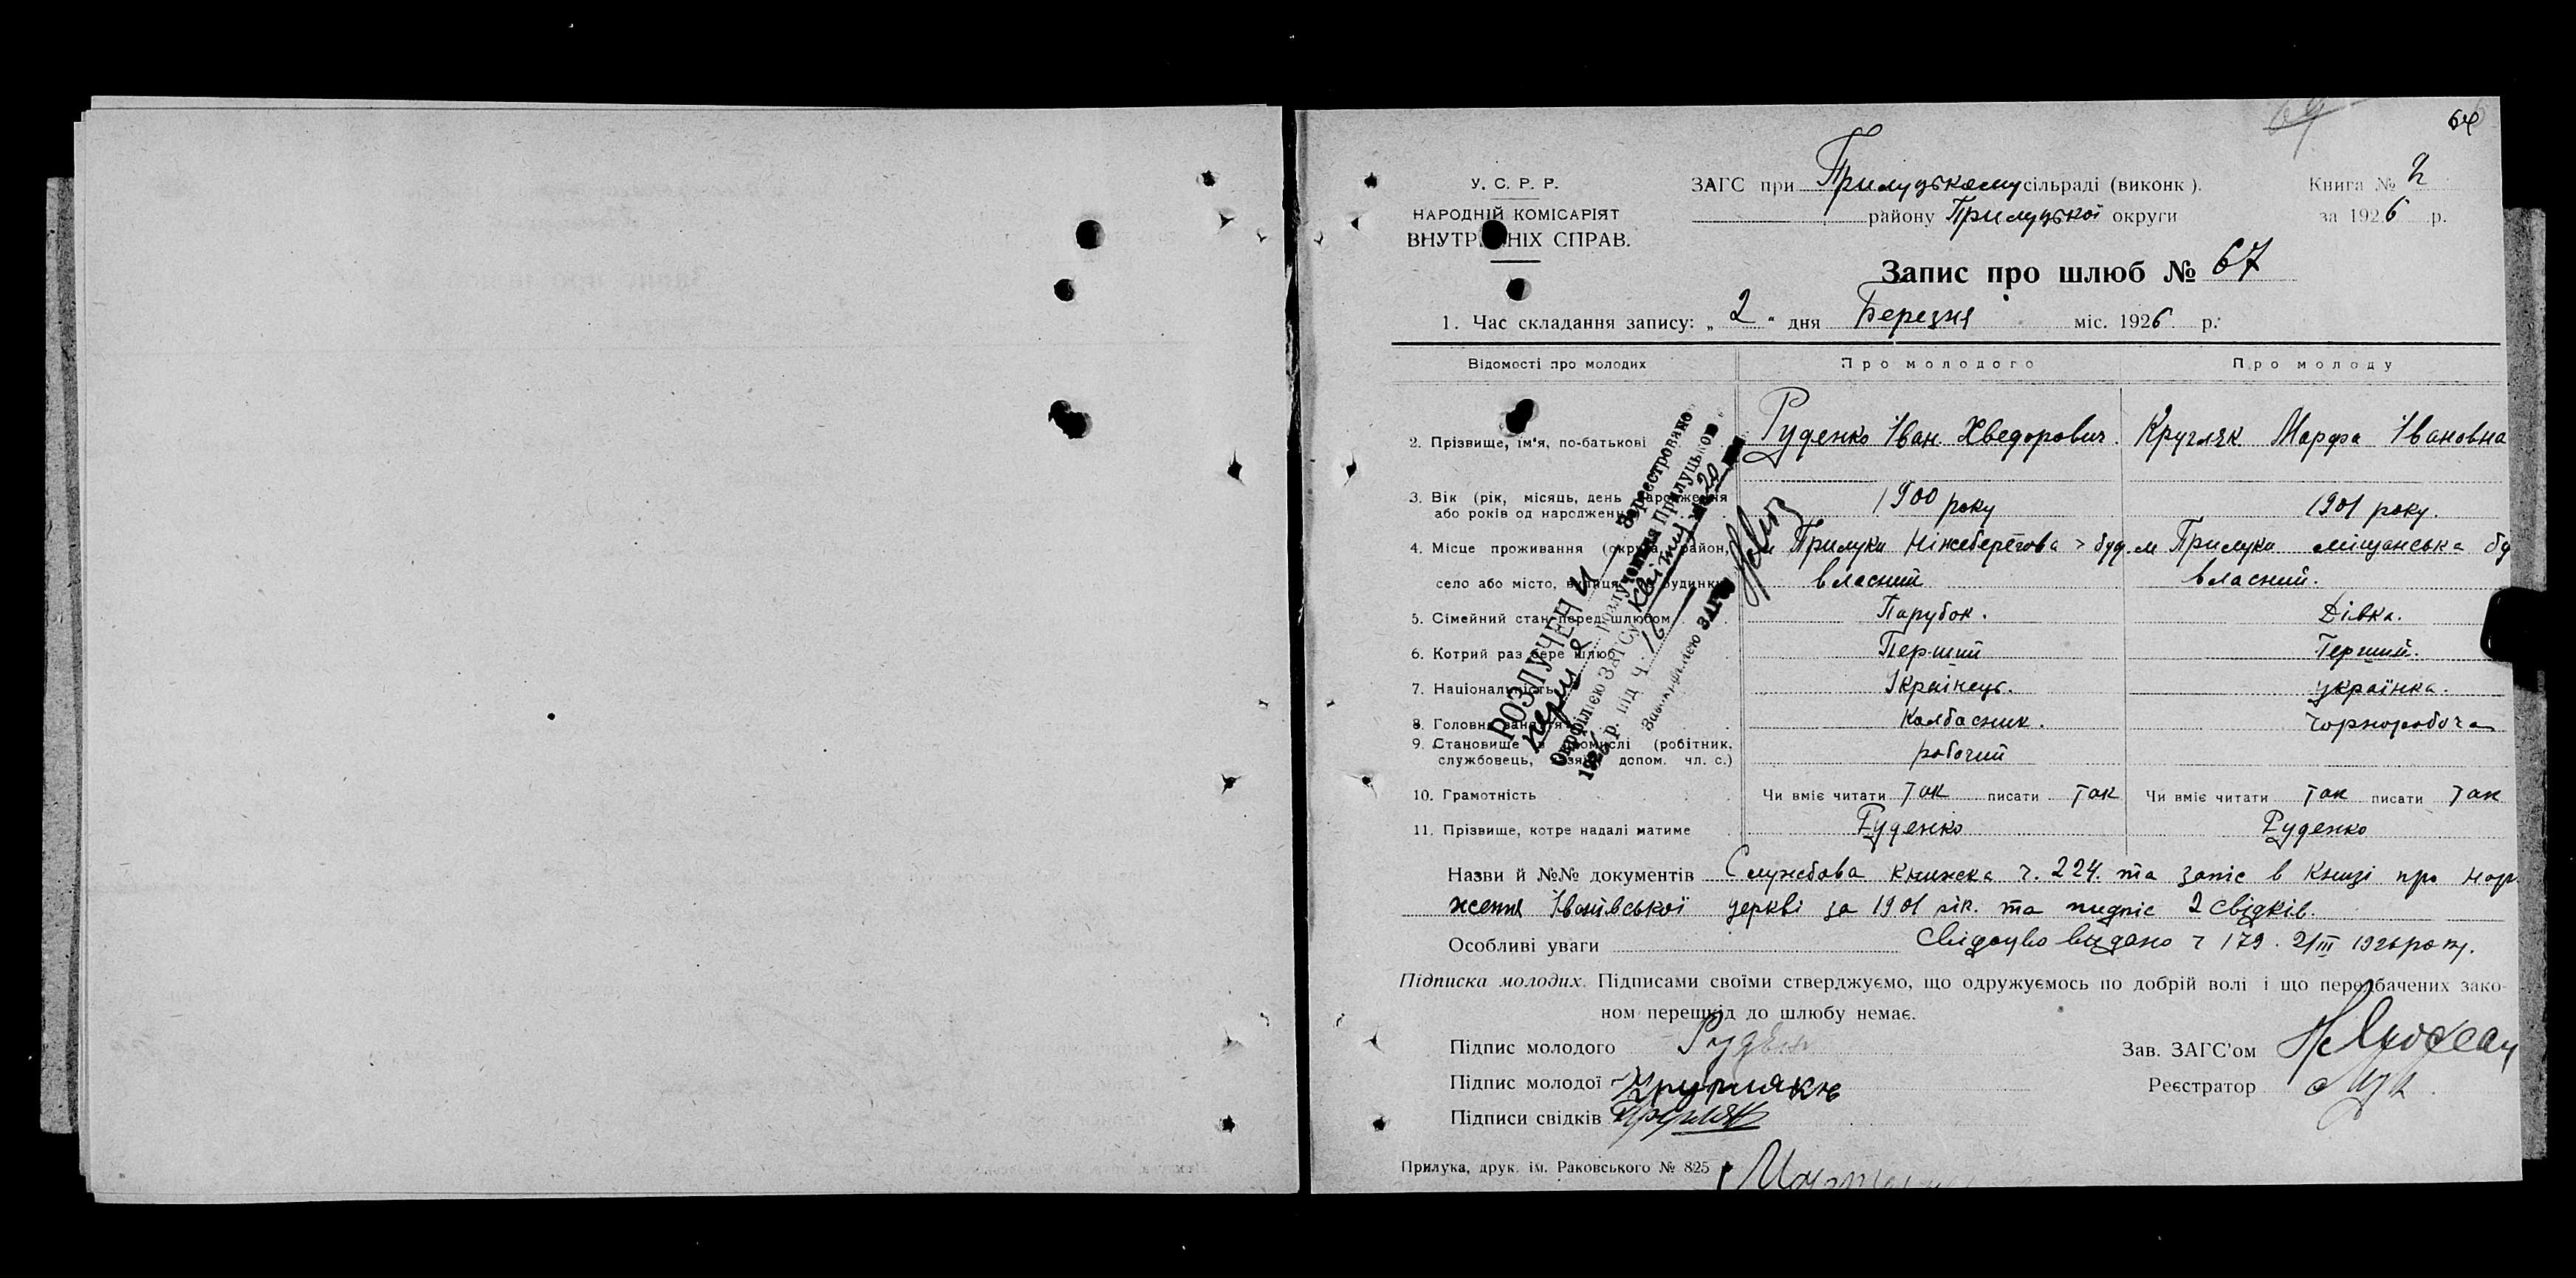 64
У. С. Р. Р.
НАРОДНІЙ КОМІСАРІЯТ
ВНУТРІШНІХ СПРАВ.
ЗАГС при Прилуцькому сільраді (виконк).
району Прилуцької округи
Книга № 2
за 1926 р.
Запис про шлюб № 67
1. Час складання запису: „ 2 “ дня Березня міс. 1926 р.
Відомості про молодих Про молодого Про молоду
2. Прізвище, ім'я, по-батькові Руденко Іван Хведорович. Кругляк Марфа Івановна
3. Вік (рік, місяць, день народження
або років од народження 1900 року 1901 року.
4. Місце проживання (округа, район, м Прилуки Ніжеберегова буд. м Прилуки міщанська бу
село або місто, вулиця, будинку власний власний.
5. Сімейний стан перед шлюбом Парубок. Дівка.
6. Котрий раз бере шлюб Перший Перший.
7. Національність Українець. українка.
8. Головне заняття Колбасник. Чорноробоча
9. Становище в промислі (робітник,
службовець, хазяїн, допом. чл. с.) робочий
10. Грамотність Чи вміє читати так писати так Чи вміє читати так писати так
11. Прізвище, котре надалі матиме Руденко Руденко
РОЗЛУЧЕНИ
Зареєстровано
розлучення Прилуцькою
Окрфілією ЗАГСу квітня
1926 р. під ч. 16
Завокрфілією ЗАГС
Назви й №№ документів Служебова книжка ч. 224. та запіс в книзі про нар
ження Іванівської церкві за 1901 рік. та пидпіс 2 свідків.
Особливі уваги Свідоцво видано ч 179. 2/III 1926 року.
Підписка молодих. Підписами своїми стверджуємо, що одружуємось по добрій волі і що передбачених зако-
ном перешкід до шлюбу немає.
Підпис молодого Руден
Зав. ЗАГС'ом
Підпис молодої
Реєстратор
Підписи свідків
Прилука, друк. ім. Раковського № 825